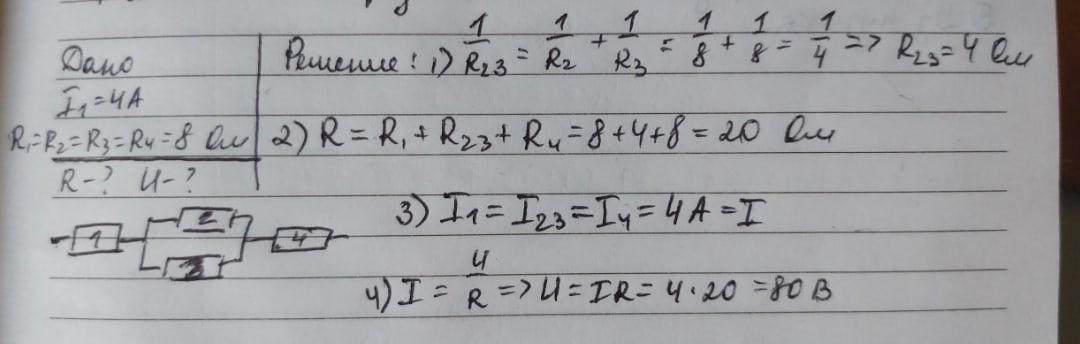 Дано
I₁=4А
R₁=R₂=R₃=R₄=8 Ом
R-? U-?
Решение: 1) 1/R₂₃ = 1/R₂ + 1/R₃ = 1/8 + 1/8 = 1/4 => R₂₃=4 Ом
2) R=R₁+R₂₃+R₄=8+4+8=20 Ом
1 2 3 4
3) I₁=I₂₃=I₄=4А=I
4) I = U/R => U=IR=4·20=80 В